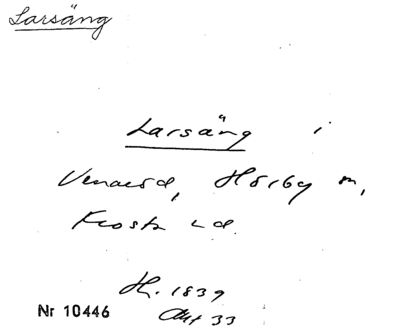 Larsäng
Larsäng i
Hörby sn,
Frosta hd.
H. 1839
Akt 33
Nr 10446